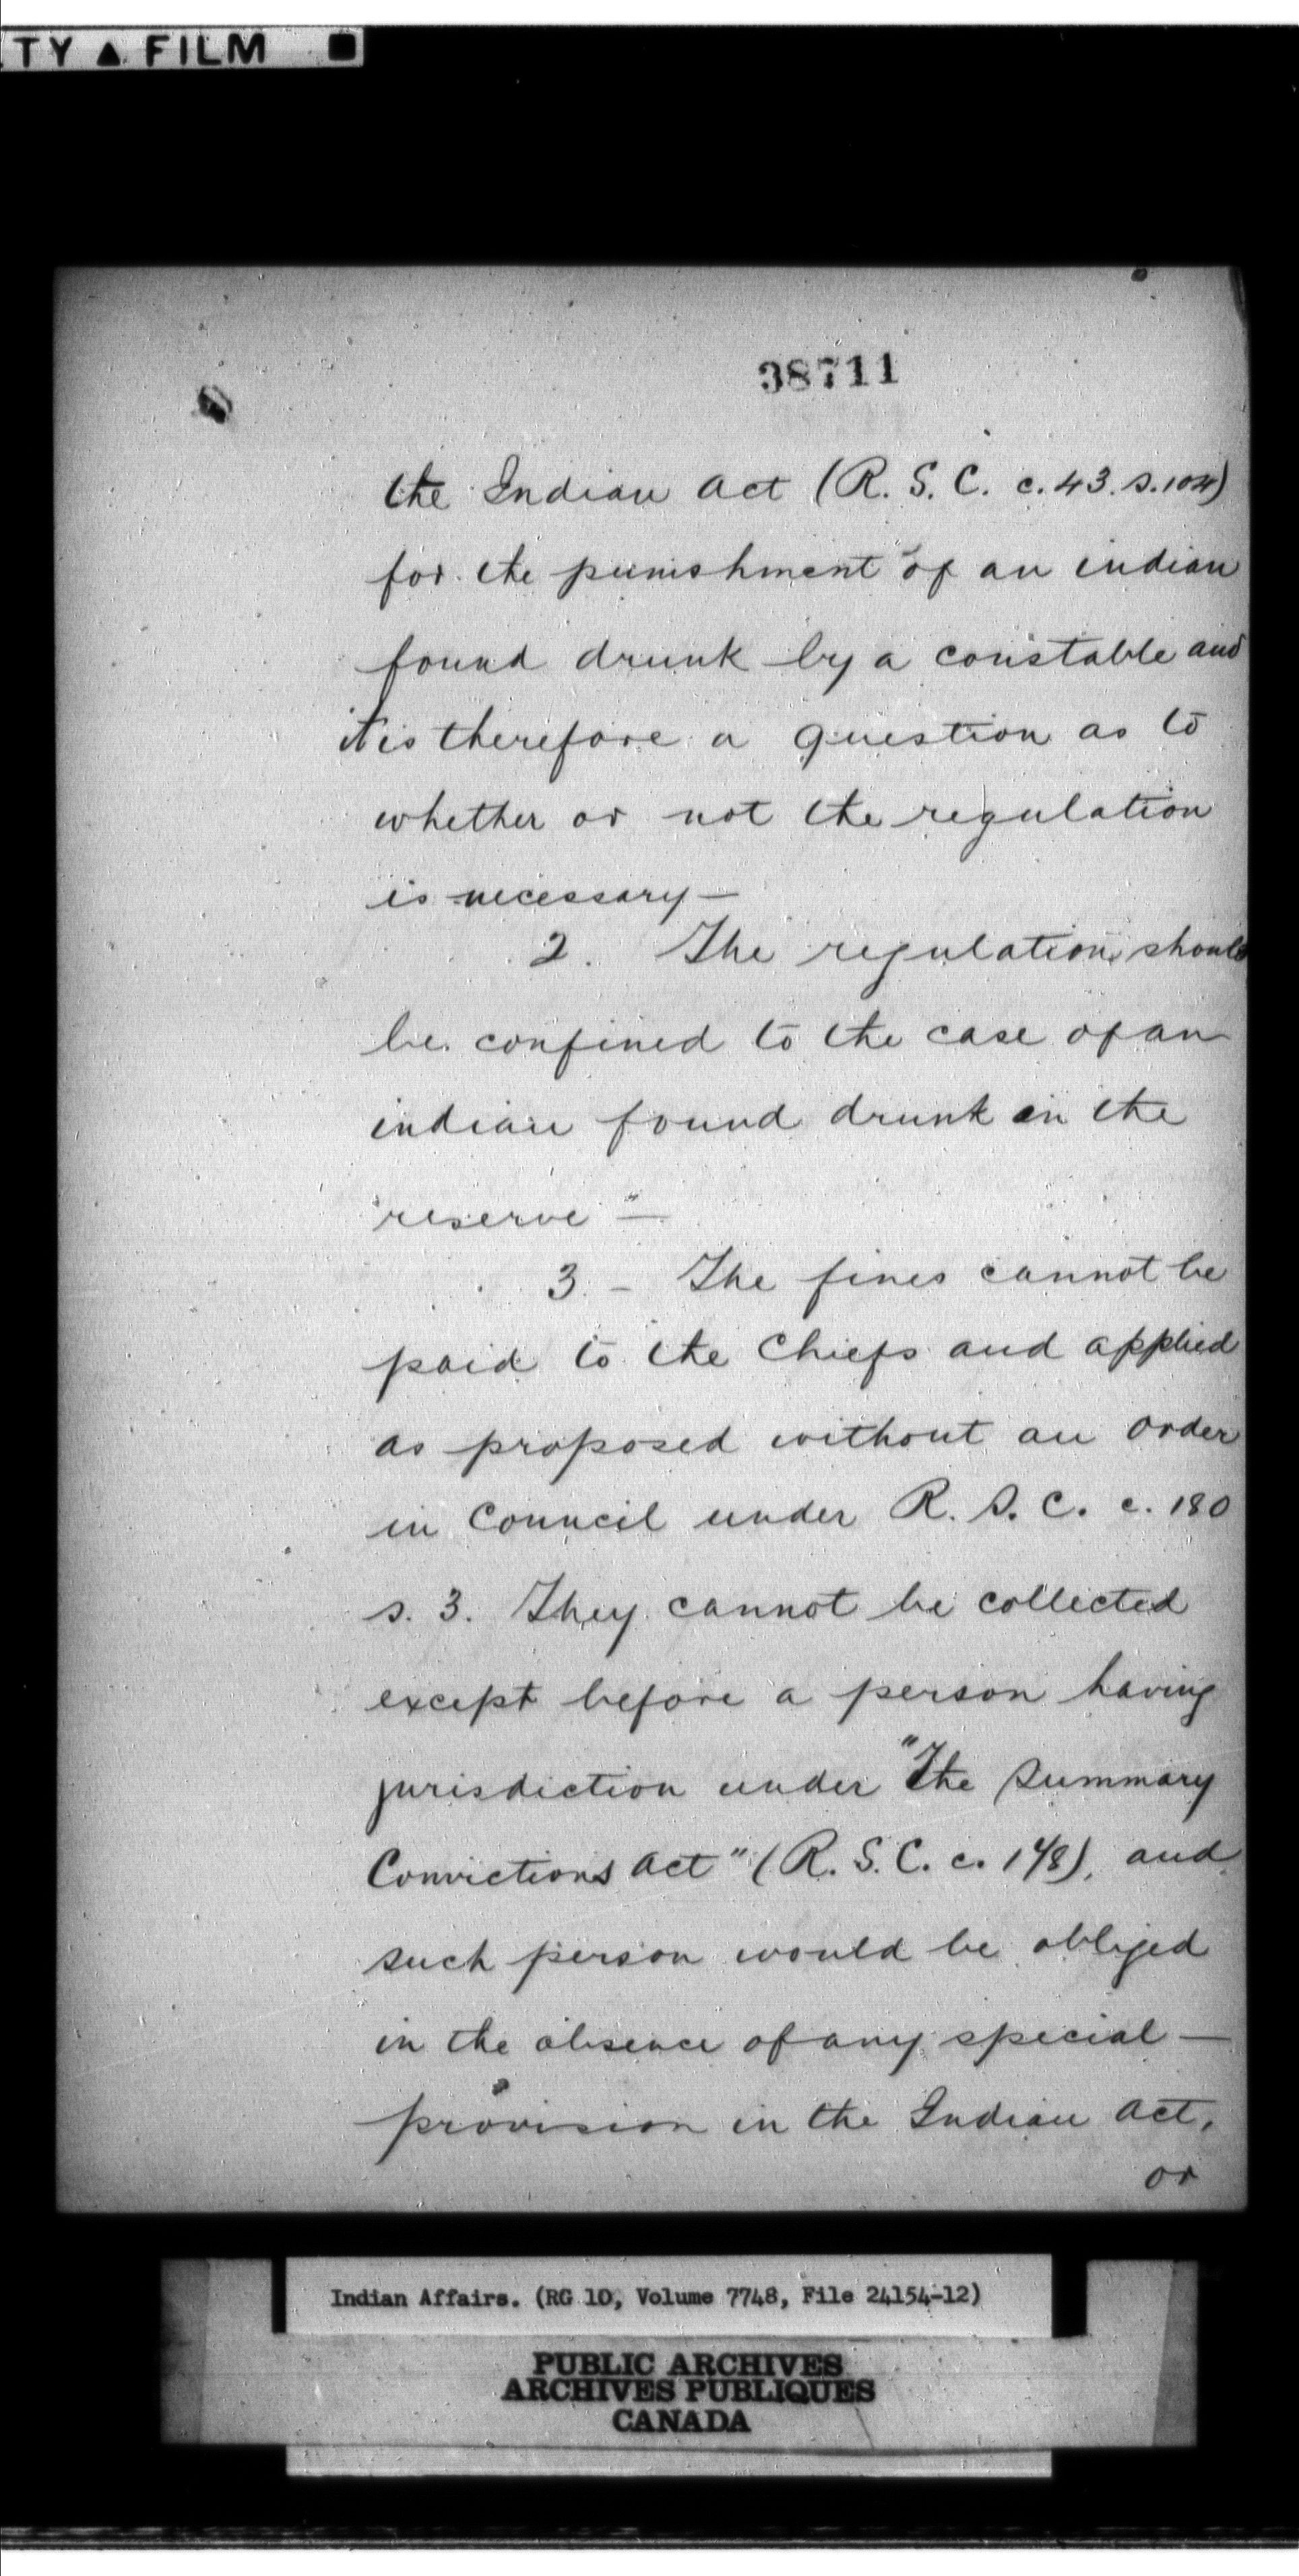 TY ▲ FILM ■
38711
the Indian Act (R. S. C. c. 43. s. 104)
for the punishment of an indian
found drunk by a constable and
it is therefore a question as to
whether or not the regulation
is necessary —
2. The regulation should
be confined to the case of an
indian found drunk on the
reserve —
3. — The fines cannot be
paid to the Chiefs and applied
as proposed without an order
in Council under R. S. C. c. 180
s. 3. They cannot be collected
except before a person having
jurisdiction under "The Summary
Convictions Act" (R. S. C. c. 178), and
such person would be obliged
in the absence of any special —
provision in the Indian Act,
or
Indian Affairs. (RG 10, Volume 7748, File 24154-12)
PUBLIC ARCHIVES
ARCHIVES PUBLIQUES
CANADA